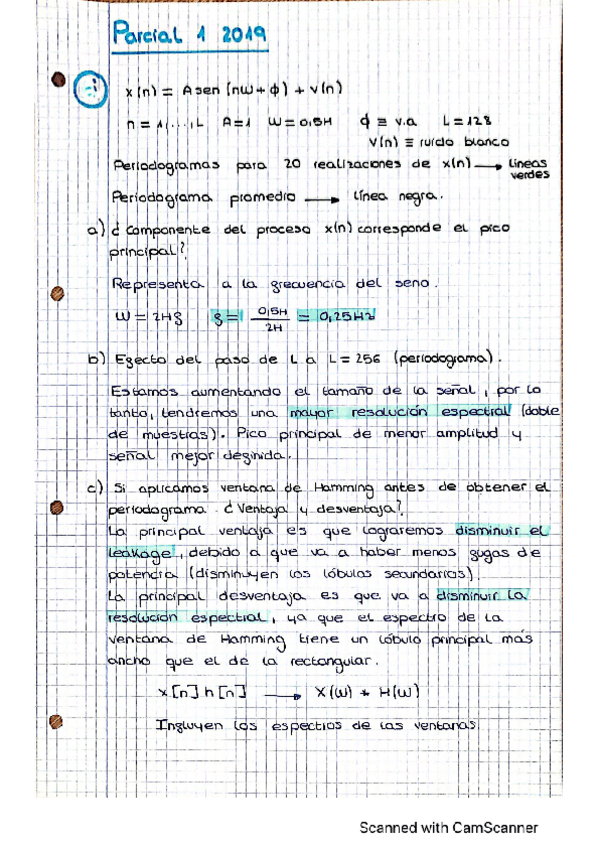 Parcial 1 2019
x(n) = A sen (nω + ϕ) + v(n)
n = 1,...,L A=1 ω = 0,5π ϕ ≡ v.a L = 128
v(n) ≡ ruido blanco
Periodogramas para 20 realizaciones de x(n) → líneas verdes
Periodograma promedio → línea negra.
a) ¿Componente del proceso x(n) corresponde el pico
principal?
Representa a la frecuencia del seno.
ω = 2πf f = 0,5π / 2π = 0,25Hz
b) Efecto del paso de L a L = 256 (periodograma).
Estamos aumentando el tamaño de la señal, por lo
tanto, tendremos una mayor resolución espectral (doble
de muestras). Pico principal de menor amplitud y
señal mejor definida.
c) Si aplicamos ventana de Hamming antes de obtener el
periodograma. ¿Ventaja y desventaja?
La principal ventaja es que lograremos disminuir el
leakage, debido a que va a haber menos fugas de
potencia (disminuyen los lóbulos secundarios).
La principal desventaja es que va a disminuir la
resolución espectral, ya que el espectro de la
ventana de Hamming tiene un lóbulo principal más
ancho que el de la rectangular.
x[n] h[n] → X(ω) * H(ω)
Influyen los espectros de las ventanas.
Scanned with CamScanner